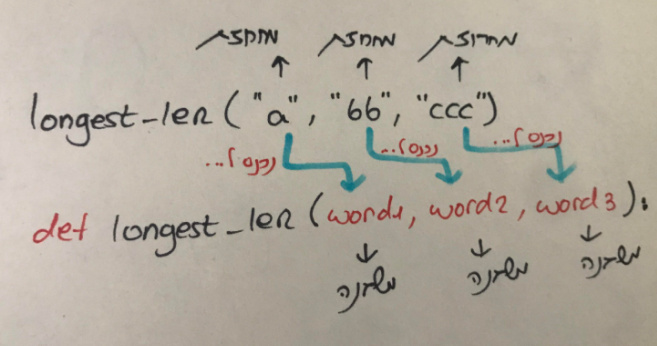 מחרוזת מחרוזת מחרוזת
longest_len ("a", "bb", "ccc")
נכנס ל... נכנס ל... נכנס ל...
def longest_len (word1, word2, word3):
משתנה משתנה משתנה